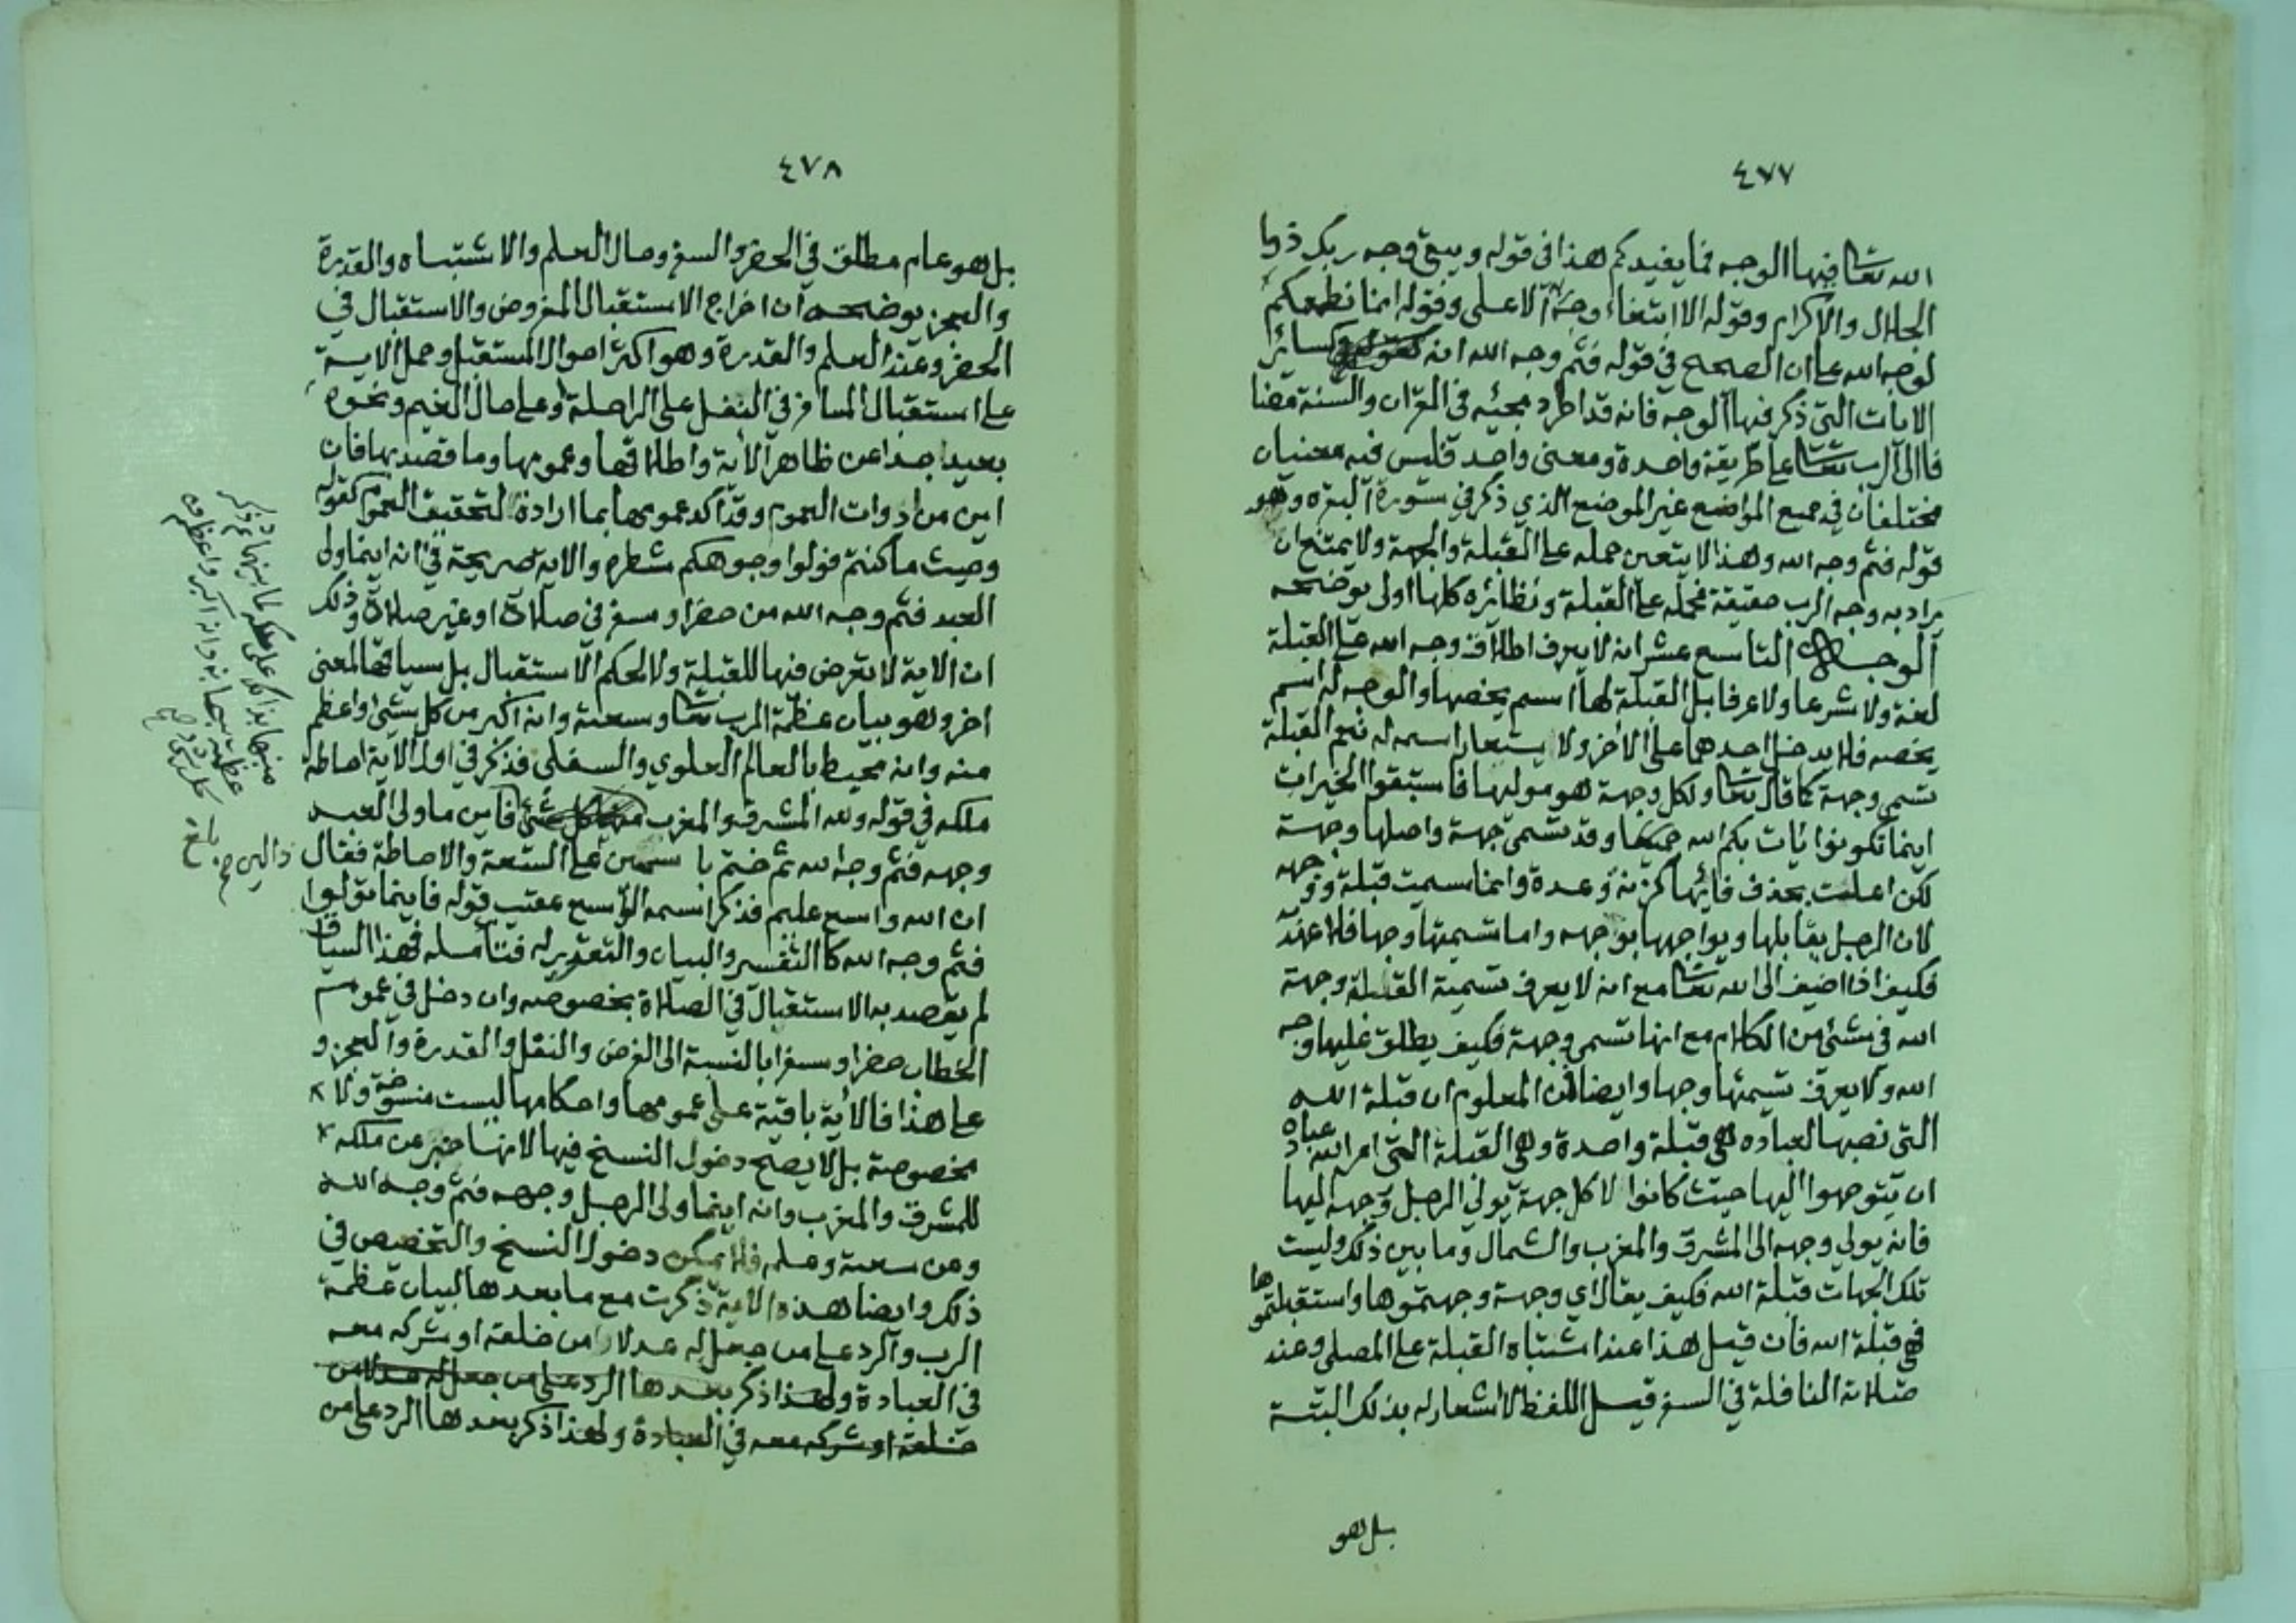 ٤٧٧
الله تعالى فيها الوجه فما يفيدكم هذا في قوله ويبقى وجه ربك ذوا
الجلال والاكرام وقوله الا ابتغاء وجه ربه الاعلى وقوله انما نطعمكم
لوجه الله على ان الصحيح في قوله فثم وجه الله انه كقوله وكسائر
الايات التي ذكر فيها الوجه فانه قد اطرد مجيئه في القران والسنة مضا
فا الى الرب تعالى على طريقة واحدة ومعنى واحد فليس فيه معنيان
مختلفان في جميع المواضع غير الموضع الذي ذكر في سورة البقره وهو
قوله فثم وجه الله وهذا لا يتعين حمله على القبلة والجهة ولا يمتنع ان
يراد به وجه الرب حقيقة فحمله على القبلة ونظائره كلها اولى يوضحه
الوجه التاسع عشر انه لا يعرف اطلاق وجه الله على القبلة
لغة ولا شرعا ولا عرفا بل القبلة لها اسم يخصها والوجه له اسم
يخصه فلا يدخل احدهما على الاخر ولا يستعار اسمه له نعم القبلة
تسمى وجهة كما قال تعالى ولكل وجهة هو موليها فاستبقوا الخيرات
اينما تكونوا يات بكم الله جميعا وقد تسمى جهة واصلها وجهة
لكن اعلت بحذف فائها كزنة وعدة وانما سميت قبلة ووجهه
لان الرجل يقابلها ويواجهها بوجهه واما تسميتها وجها فلا عهد
فكيف اذا اضيف الى الله تعالى مع انه لا يعرف تسمية القبلة وجهة
الله في شئ من الكلام مع انها تسمى وجهة فكيف يطلق عليها وجه
الله ولا يعرف تسميتها وجها وايضا فمن المعلوم ان قبلة الله
التي نصبها لعباده هي قبلة واحدة وهي القبلة التي امر الله عباده
ان يتوجهوا اليها حيث كانوا لا كل جهة يولي الرجل وجهه اليها
فانه يولي وجهه الى المشرق والمغرب والشمال وما بين ذلك وليست
تلك الجهات قبلة الله فكيف يقال اي وجهة وجهتموها واستقبلتموها
فهي قبلة الله فان قيل هذا عند اشتباه القبلة على المصلي وعند
صلاته النافلة في السفر قيل اللفظ لا اشعار له بذلك البتة
بل هو
٤٧٨
بل هو عام مطلق في الحضر والسفر وحال العلم والاشتباه والقدرة
والعجز يوضحه ان اخراج الاستقبال المفروض والاستقبال في
الحضر وعند العلم والقدرة وهو اكثر احوال المستقبل وحمل الاية
على استقبال المسافر في النفل على الراحلة او على حال الغيم ونحوه
بعيد جدا عن ظاهر الاية واطلاقها وعمومها وما قصد بها فان
اين من ادوات العموم وقد اكد عمومها بما ارادة لتحقيق العموم كقوله
وحيث ما كنتم فولوا وجوهكم شطره والاية صريحة في انه اينما ولى
العبد فثم وجه الله من حضر او سفر في صلاة او غير صلاة وذلك
ان الاية لا تعرض فيها للقبلة ولا لحكم الاستقبال بل سياقها لمعنى
اخر وهو بيان عظمة الرب تعالى وسعته وانه اكبر من كل شئ واعظم
منه وانه محيط بالعالم العلوي والسفلي فذكر في اول الاية احاطة
ملكه في قوله ولله المشرق والمغرب فاين ما ولى العبد
وجهه فثم وجه الله ثم ختم با سمين على السعة والاحاطة فقال دالين
ان الله واسع عليم فذكر اسمه الواسع عقيب قوله فاينما تولوا
فثم وجه الله كالتفسير والبيان والتقرير له فتأمله فهذا السياق
لم يقصد به الاستقبال في الصلاة بخصوصه وان دخل في عموم
الخطاب حضرا وسفرا بالنسبة الى الفرض والنفل والقدرة والعجز و
على هذا فالاية باقية على عمومها واحكامها ليست منسوخة ولا
مخصوصة بل لا يصح دخول النسخ فيها لانها خبر عن ملكه
للمشرق والمغرب وانه اينما ولى الرجل وجهه فثم وجه الله
وعن سعته وعلمه فلا يمكن دخول النسخ والتخصيص في
ذلك وايضا هذه الاية ذكرت مع ما بعدها لبيان عظمة
الرب والرد على من جعل له عدلا من خلقه او شركه معه
في العبادة ولهذا ذكر بعدها الرد على من جعل له عدلا من
خلقه او شركه معه في العبادة ولهذا ذكر بعدها الرد على من
منبها بذلك على ملكه لما بينهما ثم ذكر
عظمته سبحانه وانه اكبر واعظم من
كل شئ